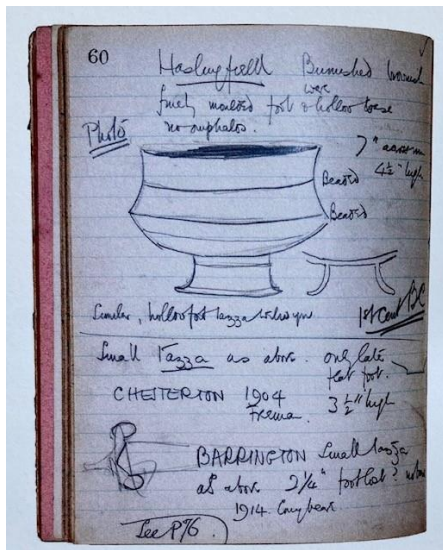 60
Haslingfield Burnished brown
ware
finely moulded foot & hollow base
no omphalos.
Photo
7" across
4½" high
Beaded
Beaded
Similar, hollow foot tazza Welwyn
1st Cent BC
Small Tazza as above. one late
flat foot.
CHESTERTON 1904
3½" high
BARRINGTON Small tazza
as above 2¼" foot lost?
1914. Conybeare
See P76.